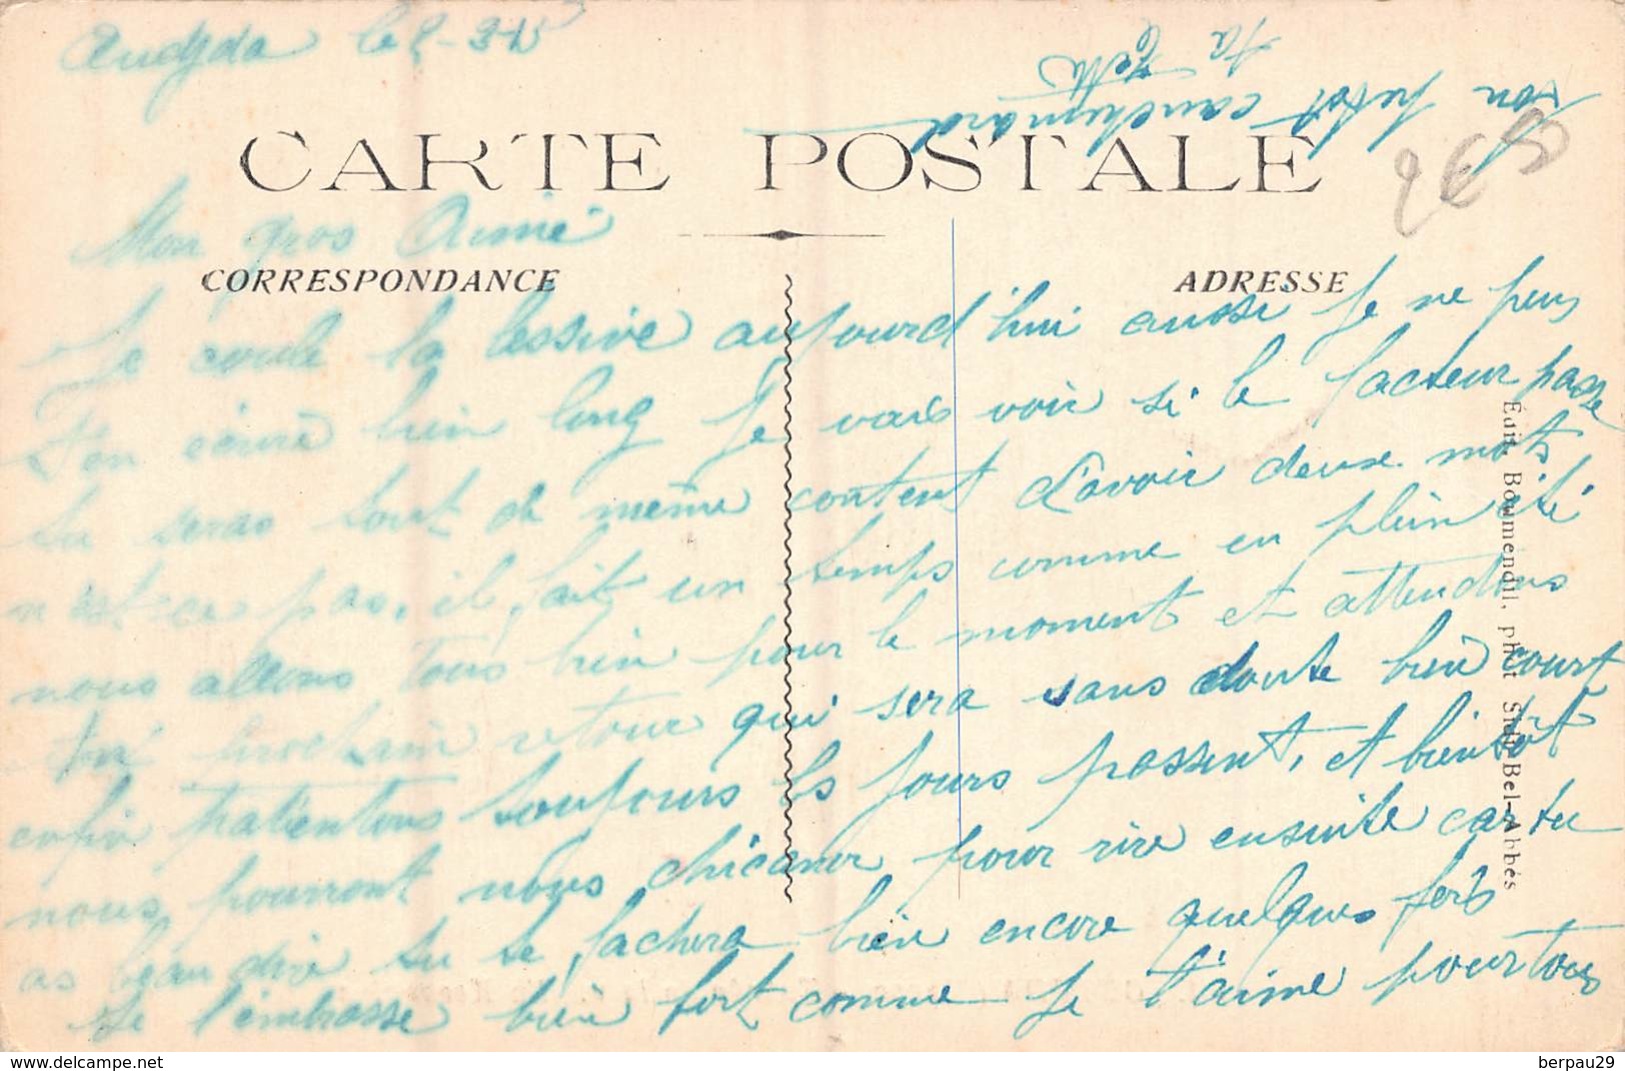 Oudjda le 2-3-15
CARTE POSTALE
Mon gros Aimé
CORRESPONDANCE
ADRESSE
Je coule la lessive aujourd'hui aussi je ne peus
t'en écrire bien long je vais voir si le facteur passe
tu seras tout de même content d'avoir deux mots
n'est ce pas, il fait un temps comme en plein été
nous allons tous bien pour le moment et attendons
ton prochain retour qui sera sans doute bien court
enfin patientons toujours les jours passent, et bientôt
nous pourront nous chicaner pour rire ensuite car tu
as beau dire tu te fachera bien encore quelques fois
Je t'embrasse bien fort comme je t'aime pour tous
ton petot cauchemard
ta
Édit. Boumendil, phot. Sidi-Bel-Abbés
berpau29